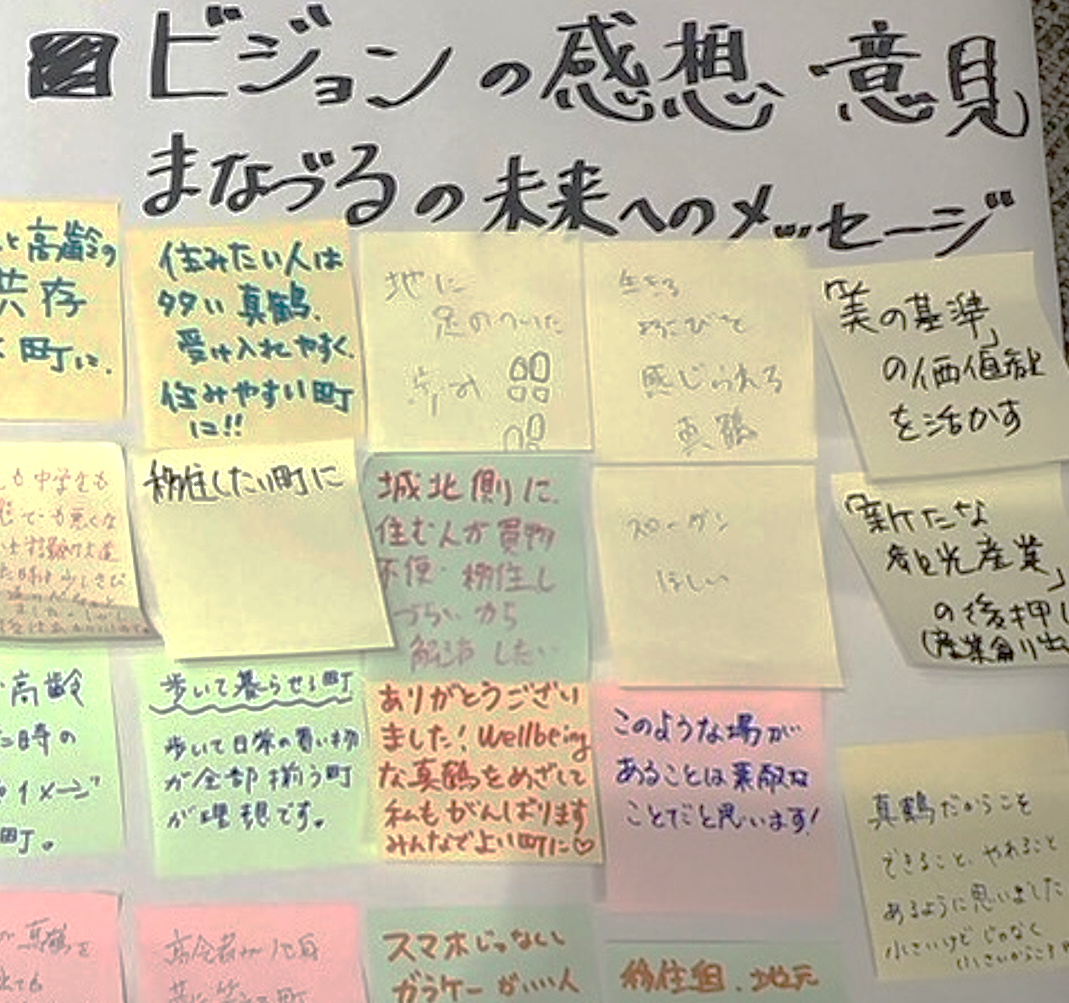 ビジョンの感想 意見
まなづるの未来へのメッセージ
と高齢の
共存
町に.
住みたい人は
多い真鶴.
受け入れやすく.
住みやすい町
に!!
地に
足のついた
歩み
生きる
よろこびを
感じられる
真鶴
「美の基準」
の価値観
を活かす
も中学生も
移住したい町に
城北側に.
住む人が買物
不便 移住し
づらいから
解消したい
スローガン
ほしい
「新たな
観光産業」
の後押し
(産業創り出
高齢
時の
イメージ
町。
歩いて暮らせる町
歩いて日常の買い物
が全部揃う町
が理想です。
ありがとうござい
ました! Wellbeing
な真鶴をめざして
私もがんばります
みんなでよい町に♡
このような場が
あることは素敵な
ことだと思います!
真鶴だからこそ
できること、やれること
あるように思いました
小さいけどじゃなく
小さいからこそ
真鶴を
ても
スマホじゃない
ガラケーがいい人
移住組.地元